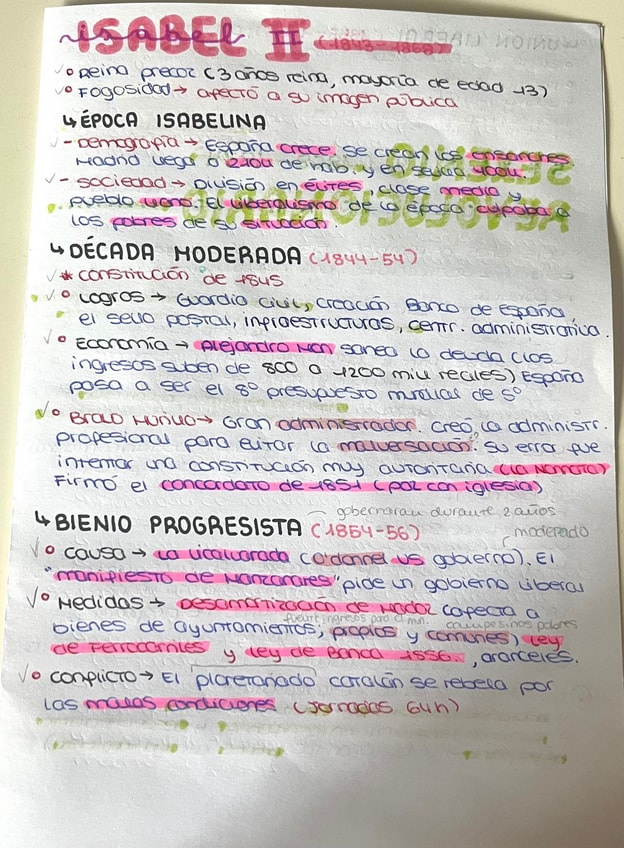 ISABEL II (1843-1868)
Reina precoz (3 años reina, mayoría de edad 13)
Fogosidad → afectó a su imagen pública
↳ ÉPOCA ISABELINA
- Demografía → España crece. Se crean los ensanches.
Madrid llega a de hab. y en Sevilla
- Sociedad → División en élites, clase media y
pueblo llano. El liberalismo de la época culpaba a
los pobres de su situación.
↳ DÉCADA MODERADA (1844-54)
* Constitución de 1845
Logros → Guardia civil, creación Banco de España,
el sello postal, infraestructuras, centr. administrativa.
Economía → Alejandro Mon sanea la deuda (los
ingresos suben de 800 a 1200 mill reales) España
pasa a ser el 8º presupuesto mundial de 5º
Bravo Murillo → Gran administrador. Creó la administr.
profesional para evitar la malversación. Su error fue
intentar una constitución muy autoritaria (La Nonata)
Firmó el concordato de 1851 (paz con iglesia)
gobernaran durante 2 años
↳ BIENIO PROGRESISTA (1854-56)
moderado
Causa → La vicalvarada (O'donnel vs gobierno). El
"manifiesto de Manzanares" pide un gobierno liberal
Medidas → Desamortización de Madoz (afecta a
fuente ingresos para campesinos pobres
bienes de ayuntamientos, propios y comunes) Ley
de Ferrocarriles y Ley de Banca 1856, aranceles.
Conflicto → El proletariado catalán se rebela por
las malas condiciones (Jornadas 64h)